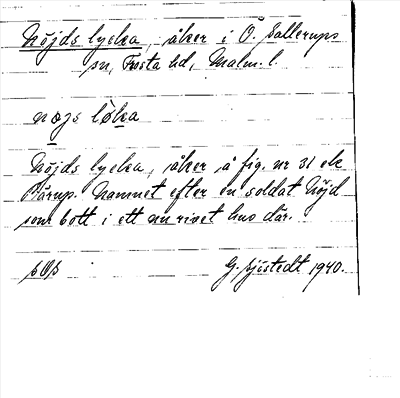 Nöjds lycka, åker i Ö. Sallerups
sn, Frosta hd, Malm. l.
Nöjds lycka, åker å fig. nr 31 ek
Pärup. Namnet efter en soldat Nöjd
som bott i ett nu rivet hus där.
G. Sjöstedt 1940.